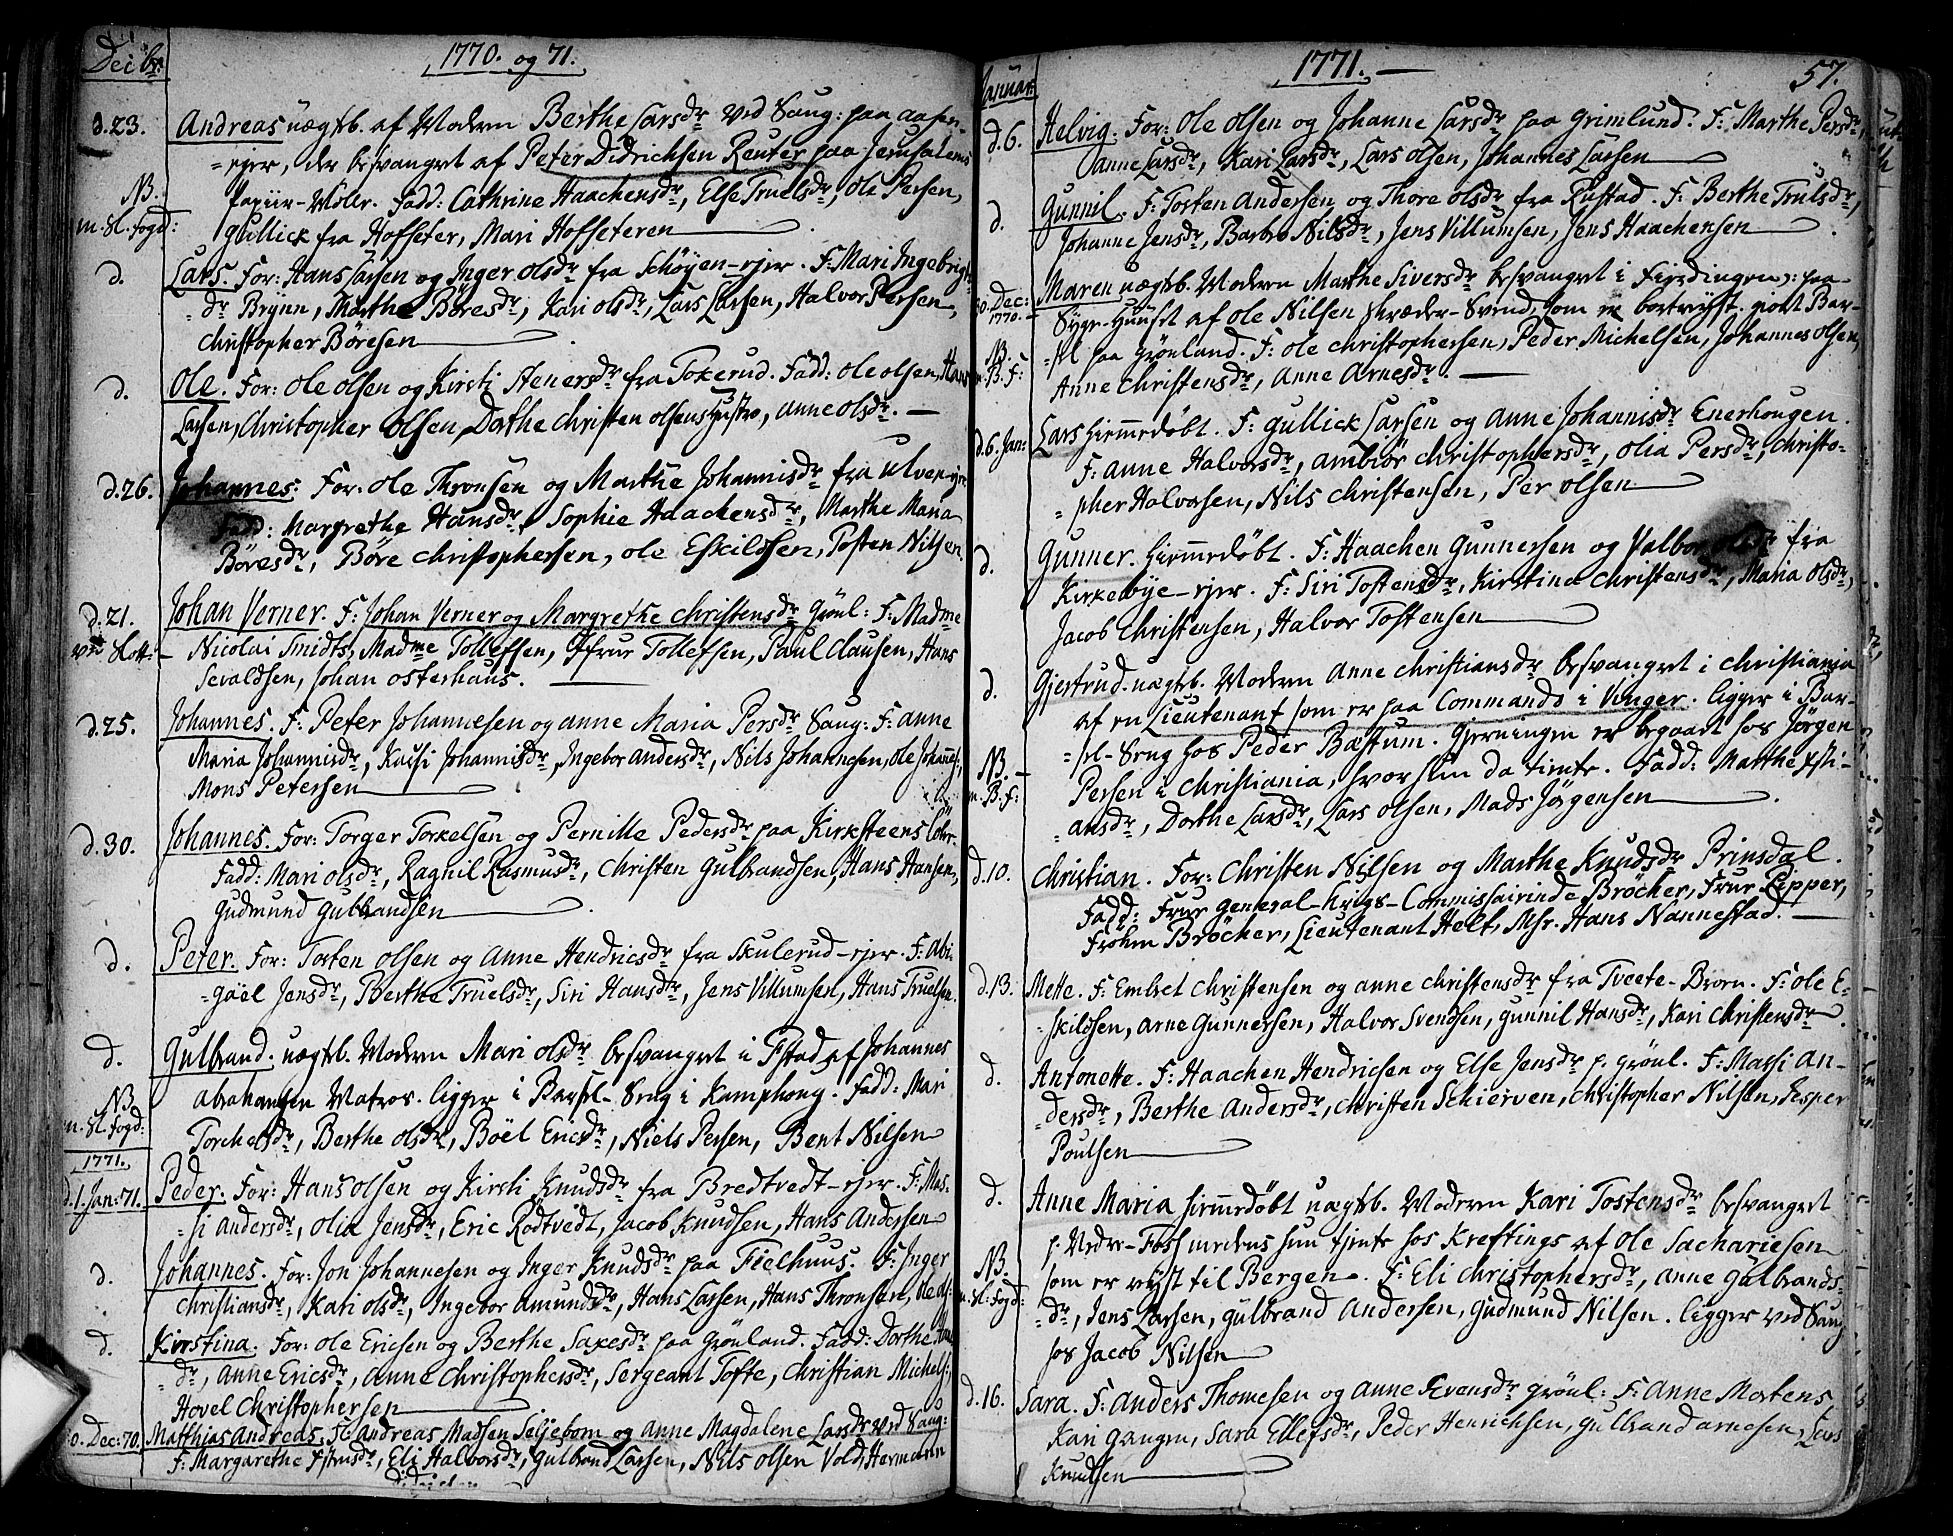 Decbr. 1770. og 71.
d. 23. Andreas uægtb. af Moderen Berthe Larsdr ved Saug: paa aasen-
=ejer, der besvangret af Peter Didrichsen Reuter paa Jerusalems
NB. Papiir-Mölle. Fadd: Cathrine Haachensdr, Else Truelsdr, Ole Persen,
m. Sl. fogd: Gullick fra Hofseter, Mari Hofseteren
d. Lars. For: Hans Larsen og Inger olsdr fra Schøyen-ejer. F: Mari Ingebrigts
=dr Brynn, Marthe Böresdr, Kari olsdr, Lars Larsen, Halvor Persen,
Christopher Böresen
d. Ole. For: Ole olsen og Kirsti Stenersdr fra Tokerud. Fadd: Ole olsen, Hans
Larsen, Christopher Olsen, Dorthe Christen olsens Hustro, Anne olsdr.
d. 26. Johannes. For: Ole Thronsen og Marthe Johannisdr fra Ulven-ejer
Fadd: Margrethe Hansdr, Sophie Haachensdr, Marthe Maria
Böresdr, Böre Christophersen, Ole Eskildsen, Tosten Nilsen.
d. 21. Johan Verner. F: Johan Verner og Margrethe Christensdr Grönl: F: Madme
Slott: Nicolai Smidts, Madme Tollefsen, Jfrur Tollefsen, Paul Clausen, Hans
Sevaldsen, Johan Osterhaus.
d. 25. Johannes. F: Peter Johannesen og Anne Maria Persdr Saug: F: Anne
Maria Johannisdr, Kaisi Johannisdr, Ingebor Andersdr, Nils Johannesen, Ole Johannes:,
Mons Petersen
d. 30. Johannes. For: Torger Torkelsen og Pernille Pedersdr paa Kirksteens Löhr.
Fadd: Mari olsdr, Ragnil Rasmusdr, Christen Gulbrandsen, Hans Hansen,
Gudmund Gulbrandsen
d. Peter. For: Torsten Olsen og Anne Hendricsdr fra Skulerud-ejer. F: Abi-
=gaël Jensdr, Berthe Truelsdr, Siri Hansdr, Jens Villumsen, Hans Truelsen.
d. Gulbrand. uægtb. Moderen Mari olsdr besvangret i Fstad af Johannes
NB. Abrahamsen Matros. ligger i Barsel-Seng i Kamphoug. Fadd: Mari
m. Sl. fogd: Torchelsdr, Berthe olsdr, Böel Ericsdr, Niels Persen, Bent Nilsen
1771.
d. 1. Jan: 71. Peder. For: Hans Olsen og Kirsti Knudsdr fra Bredtvedt-ejer. F: Mas-
=si Andersdr, Olia Jensdr, Eric Rödtvedt, Jacob Knudsen, Hans Andersen
d. Johannes. For: Jon Johannesen og Inger Knudsdr paa Fielhuus. F: Inger
Christiansdr, Kari olsdr, Ingebor Amundsdr, Hans Larsen, Hans Thronsen, Ole ols:
d. Kirstina. For: Ole Ericsen og Berthe Saxesdr paa Grönland. Fadd: Dorthe
=dr, Anne Ericsdr, Anne Christophersdr, Sergeant Tofte, Christian Michels:,
Hovel Christophersen
Dec: 70. Matthias Andreas. F: Andreas Madsen Seljebom og Anne Magdalene Larsdr ved Saug:
F: Margarethe Istrusdr, Eli Halvorsdr, Gulbrand Larsen, Nils Olsen Vold, Hermann
Didrichsen
Januar: 1771. 57.
d. 6. Helvig. For: Ole Olsen og Johanne Larsdr paa Grimlund. F: Marthe Persdr,
Anne Larsdr, Kari Larsdr, Lars Olsen, Johannes Larsen
d. Gunnil. F: Tosten Andersen og Thore olsdr fra Rustad. F: Berthe Trulsdr,
Johanne Jensdr, Barbro Nilsdr, Jens Villumsen, Jens Haachensen
Dec: 1770. Maren uægtb. Moderen Marthe Siversdr besvangret i Fierdingen: paa
Syge-Huuset af Ole Nilsen Skræder-Svend, som er bortreyst. giort Bar-
NB. =sel paa Grönland. F: Ole Christophersen, Peder Michelsen, Johannes Olsen,
m. B. f: Anne Christensdr, Anne Arnesdr.
d. 6. Jan: Lars hiemmedöbt. F: Gullick Larsen og Anne Johannisdr Enerhougen.
F: Anne Halvorsdr, Ambiör Christophersdr, Olia Persdr, Christo-
=pher Halvorsen, Nils Christensen, Per Olsen
d. Gunner. hiemmedöbt. F: Haachen Gunnersen og Valbor olsdr fra
Kirkebye-ejer. F: Siri Tostensdr, Kirstina Christensdr, Maria olsdr,
Jacob Christensen, Halvor Tostensen
d. Gjertrud. uægtb. Moderen Anne Christiansdr besvangret i Christiania
af en Lieutenant som er paa Commando i Vinger. ligger i Bar-
=sel-Seng hos Peder Bæstum. Gjerningen er begaaet hos Jörgen
NB. Persen i Christiania, hvor hun da tiente. Fadd: Marthe Xsti-
m. B. f: =ansdr, Dorthe Larsdr, Lars Olsen, Mads Jörgensen
d. 10. Christian. For: Christen Nilsen og Marthe Knudsdr Prinsdal.
Fadd: Frue General-Krigs-Commissairinde Bröcher, Frue Pipper,
Fröhm Bröcher, Lieutenant Helt, Msr. Hans Nannestad.
d. 13. Mette. F: Embret Christensen og Anne Christensdr fra Tveete-Broen. F: Ole E-
=skildsen, Arne Gunnersen, Halvor Svendsen, Gunnil Hansdr, Kari Christensdr.
d. Antonette. F: Haachen Hendricsen og Else Jensdr p. Grönl. F: Massi An-
dersdr, Berthe Andersdr, Christen Schierven, Christopher Nilsen, Jesper
Poulsen
d. Anne Maria hiemmedöbt uægtb. Moderen Kari Tostensdr besvangret
p. Vedre-Foss medens hun tiente hos Kreftings af Ole Sachariesen
NB. som er reyst til Bergen. F: Eli Christophersdr, Anne Gulbrands-
m. Sl: fogd: =dr, Jens Larsen, Gulbrand Andersen, Gudmund Nilsen. ligger ved Saug
hos Jacob Nilsen
d. 16. Sara. F: Anders Thomesen og Anne Svensdr Grönl: F: Anne Mortens,
Kari Gangen, Sara Ellefsdr, Peder Henrichsen, Gulbrand Arnesen, Lars
Knudsen